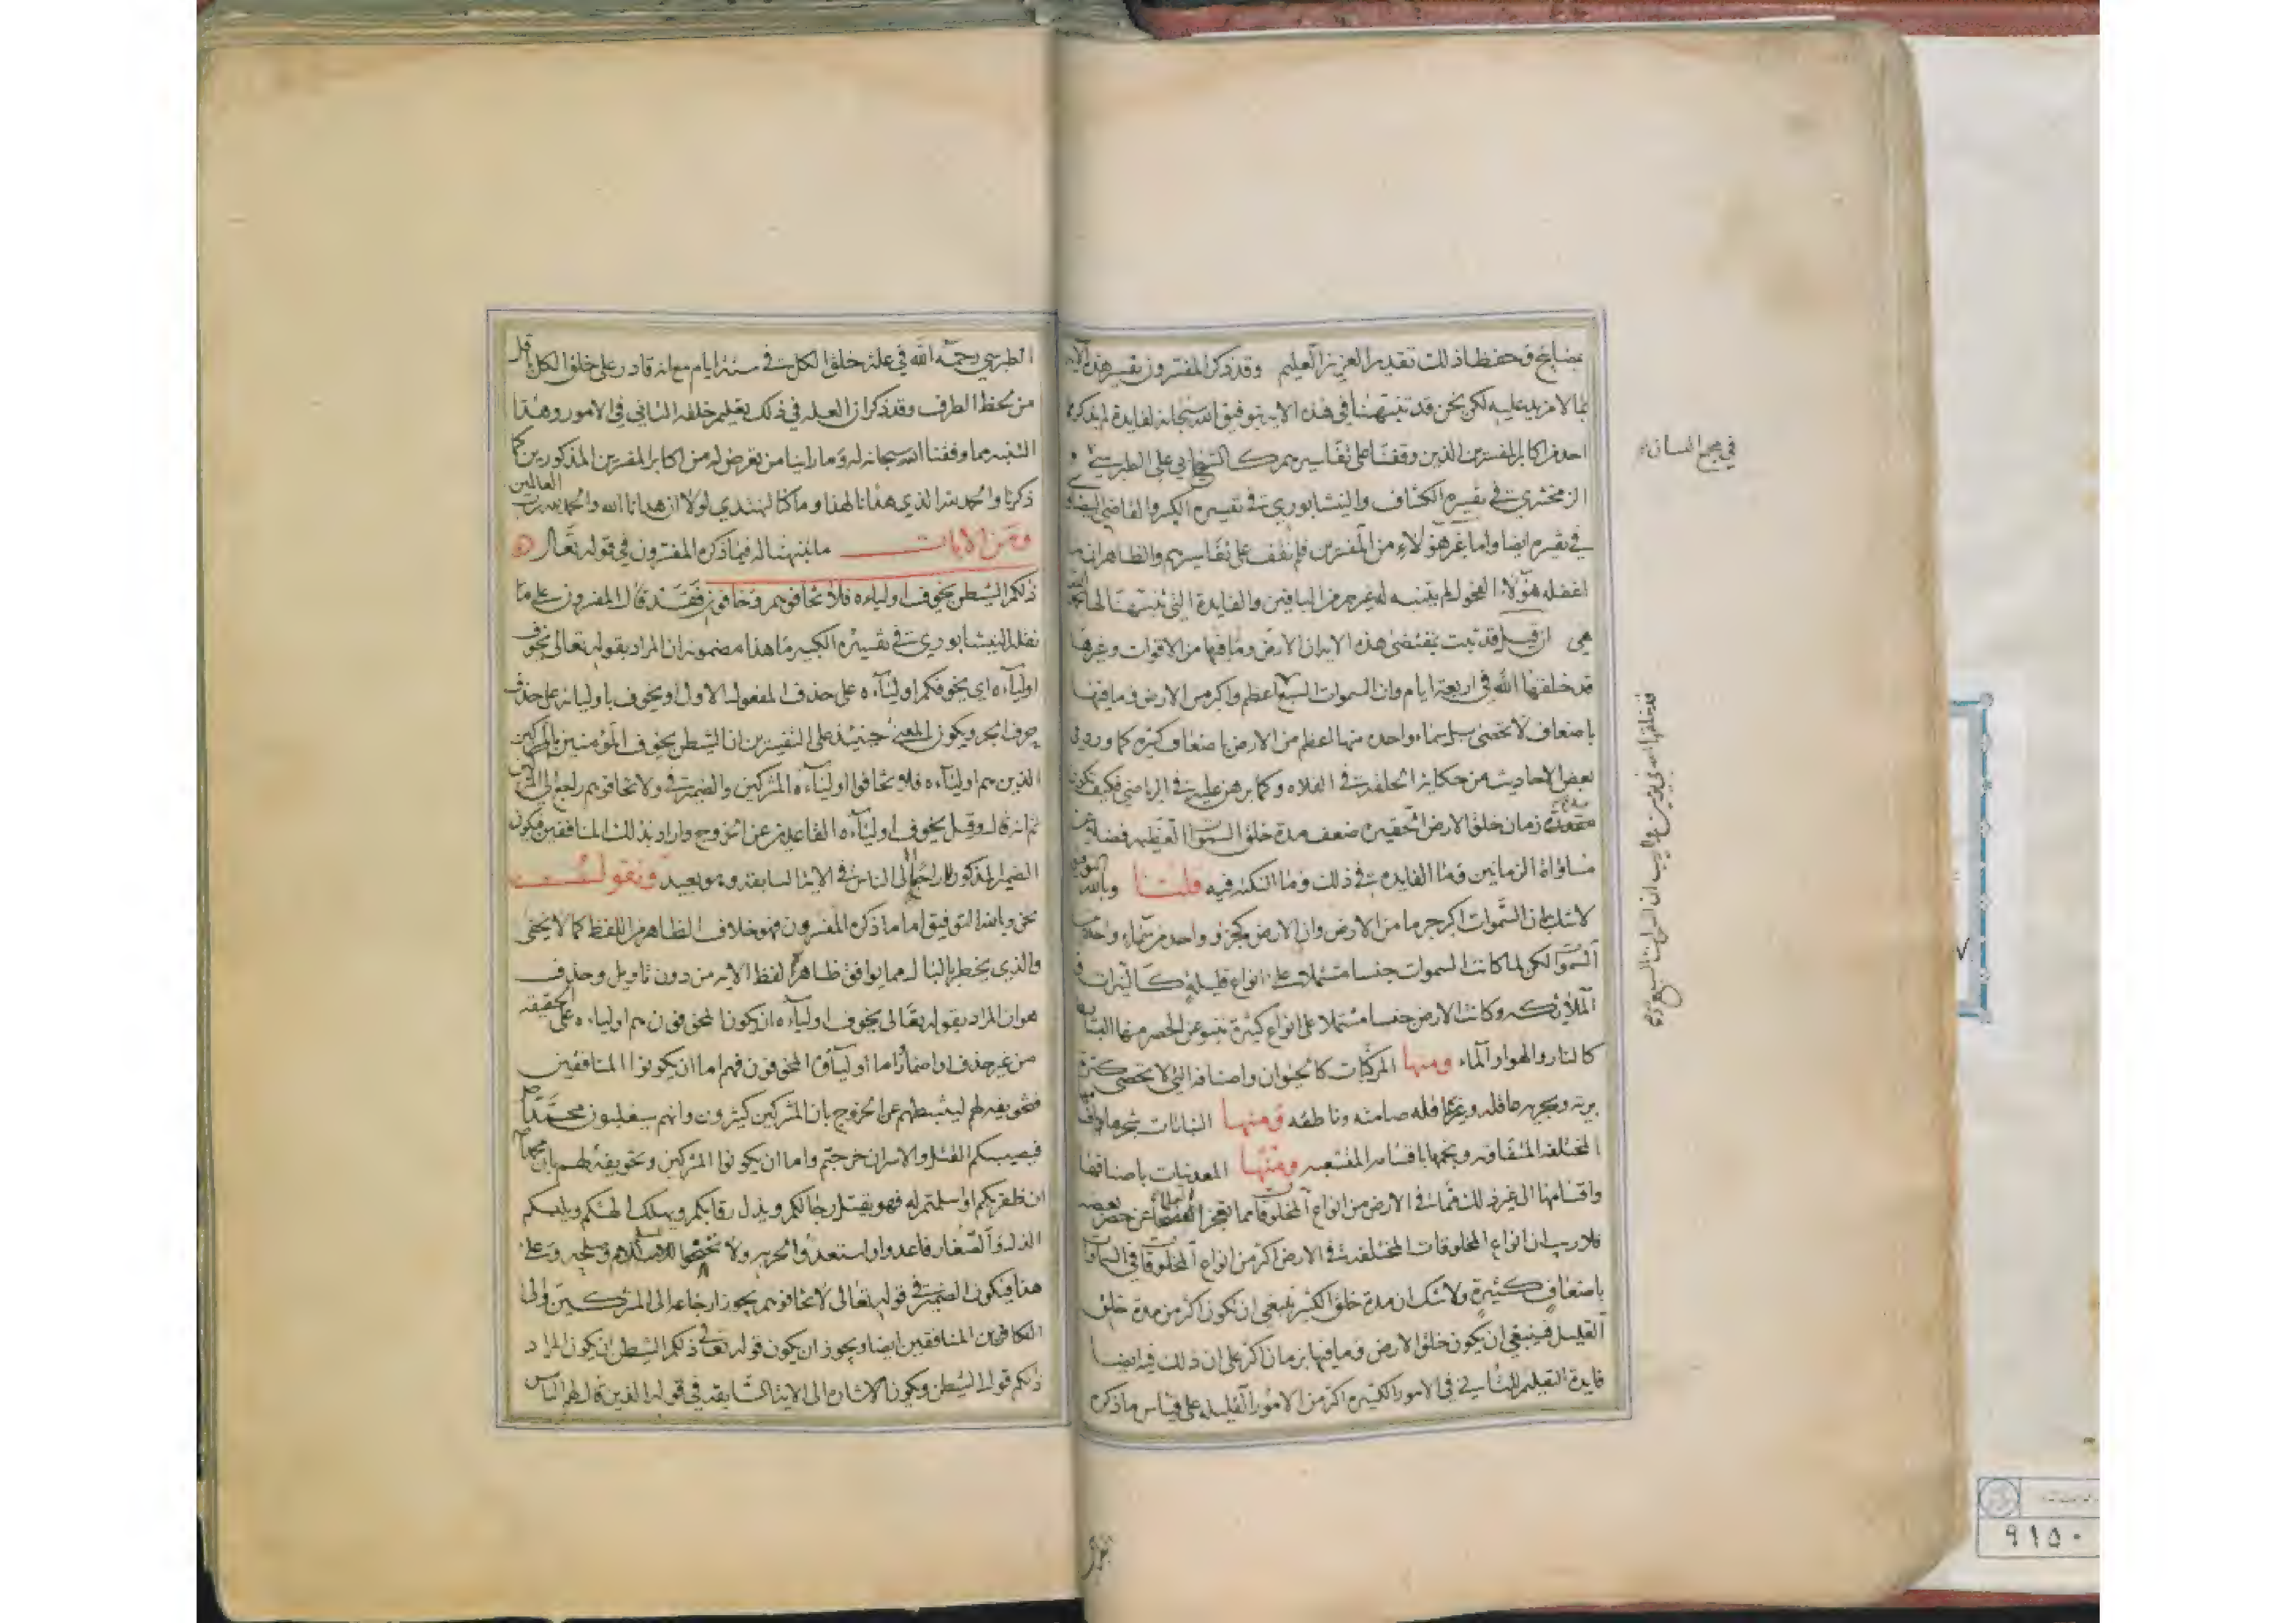 بمصابيح وحفظا ذلك تقدير العزيز العليم وقد ذكر المفسرون تفسير هذه الآية
بما لا مزيد عليه لكن نحن قد تنبهنا في هذه الآية بتوفيق الله سبحانه لفايدة لم يذكرها
احد من اكابر المفسرين الذين وقفنا على تفاسيرهم كالشيخ ابي علي الطبرسي و
في مجمع البيان
الزمخشري في تفسيره الكشاف والنيشابوري في تفسيره الكبير والقاضي البيضاوي
في تفسيره ايضا واما غير هؤلاء من المفسرين فلم نقف على تفاسيرهم والظاهر ان ما
اغفله هؤلاء الفحول لم يتنبه له غيرهم من الباقين والفايدة التي تنبهنا لها
هي ان قيل قد ثبت بمقتضى هذه الآية ان الارض وما فيها من الاقوات وغيرها
قد خلقها الله في اربعة ايام وان السموات السبع اعظم واكبر من الارض وما فيها
قد خلقها الله في يومين ولا ريب ان السموات السبع
باضعاف لا تحصى بل سماء واحدة منها اعظم من الارض باضعاف كثيرة كما ورد في
بعض الاحاديث من حكاية الحلقة في الفلاة وكما برهن عليه في الرياضي فكيف تكون
مدة زمان خلق الارض الحقيرة ضعف مدة خلق السموات العظيمة فضلا عن
مساواة الزمانين وما الفايدة في ذلك وما النكتة فيه قلنا وبالله التوفيق
لا شك ان السموات اكبر جرما من الارض وان الارض كجزؤ واحد من سماء واحدة من
السموات لكن لما كانت السموات جنسا مشتملا على انواع قليلة كالنيرات و
الملائكة وكانت الارض جنسا مشتملا على انواع كثيرة تنبو عن الحصر منها البسايط
كالنار والهواء والماء ومنها المركبات كالحيوان واصنافه التي لا تحصى كثرة
برية وبحرية عاقلة وغير عاقلة صامتة وناطقة ومنها النباتات شجرها
المختلفة المتفاوتة ونجمها باقسامه المتشعبة ومنها المعدنيات باصنافها
واقسامها الى غير ذلك مما في الارض من انواع المخلوقات مما تعجز العلماء عن حصر بعضه
فلا ريب ان انواع المخلوقات المختلفة في الارض اكثر من انواع المخلوقات في السموات
باضعاف كثيرة ولا شك ان مدة خلق الكثير ينبغي ان تكون اكثر من مدة خلق
القليل فينبغي ان يكون خلق الارض وما فيها بزمان اكثر على ان ذلك فيه ايضا
فايدة التعليم للتأني في الامور الكثيرة اكثر من الامور القليلة على قياس ما ذكره
الطبرسي رحمه الله في علة خلق الكل في ستة ايام مع انه قادر على خلق الكل باقل
من لحظ الطرف وقد ذكر ان العلة في ذلك تعليم خلقه التاني في الامور وهذا
التنبه مما وفقنا الله سبحانه له وما راينا من تعرض له من اكابر المفسرين المذكورين كما
ذكرنا والحمد لله الذي هدانا لهذا وما كنا لنهتدي لولا ان هدانا الله والحمد لله رب العالمين
ومن الايات ما تنبهنا له فيما ذكره المفسرون في قوله تعالى
ذلكم الشيطن يخوف اولياءه فلا تخافوهم وخافون فقد قال المفسرون على ما
نقله النيشابوري في تفسيره الكبير ما هذا مضمونه ان المراد بقوله تعالى يخوف
اولياءه اي يخوفكم اولياءه على حذف المفعول الاول او يخوف باوليائه على حذف
حرف الجر ويكون المعنى حينئذ على التفسيرين ان الشيطن يخوف المؤمنين بالمشركين
الذين هم اولياءه فلا تخافوا اولياءه المشركين والضمير في ولا تخافوهم راجع الى المشركين
ثم انه قال وقيل يخوف اولياءه القاعدين عن الخروج واراد بذلك المنافقين فيكون
الضمير المذكور راجعا الى الناس في الآية السابقة وهو بعيد ونقول
نحن وبالله التوفيق اما ما ذكره المفسرون فهو خلاف الظاهر من اللفظ كما لا يخفى
والذي يخطر بالبال مما يوافق ظاهر لفظ الآية من دون تاويل وحذف
هو ان المراد بقوله تعالى يخوف اولياءه ان يكون المخوفون هم اولياءه على الحقيقة
من غير حذف او اضمار اما اولياؤه المخوفون فهم اما ان يكونوا المنافقين
فتخويفه لهم ليثبطهم عن الخروج بان المشركين كثيرون وانهم سيغلبون محمدا
فيصيبكم القتل والاسر ان خرجتم واما ان يكونوا المشركين وتخويفه لهم بان محمدا
ان ظفر بكم او اسلمتم له فهو يقتل رجالكم ويذل رقابكم ويهلك الهتكم ويلبسكم
الذلة والصغار فاعدوا واستعدوا لحربه ولا تجنحوا للسلم وعلى
هذا فيكون الضمير في قوله تعالى لا تخافوهم يجوز ارجاعه الى المشركين والى
الكافرين المنافقين ايضا ويجوز ان يكون قوله تعالى ذلكم الشيطن ان يكون المراد
ذلكم قول الشيطن ويكون الاشارة الى الآية السابقة في قوله الذين قال لهم الناس
٩١٥٠